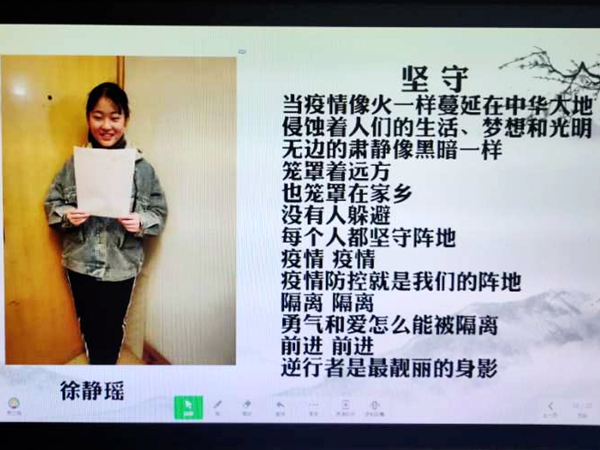 坚守
当疫情像火一样蔓延在中华大地
侵蚀着人们的生活、梦想和光明
无边的肃静像黑暗一样
笼罩着远方
也笼罩在家乡
没有人躲避
每个人都坚守阵地
疫情 疫情
疫情防控就是我们的阵地
隔离 隔离
勇气和爱怎么能被隔离
前进 前进
逆行者是最靓丽的身影
徐静瑶